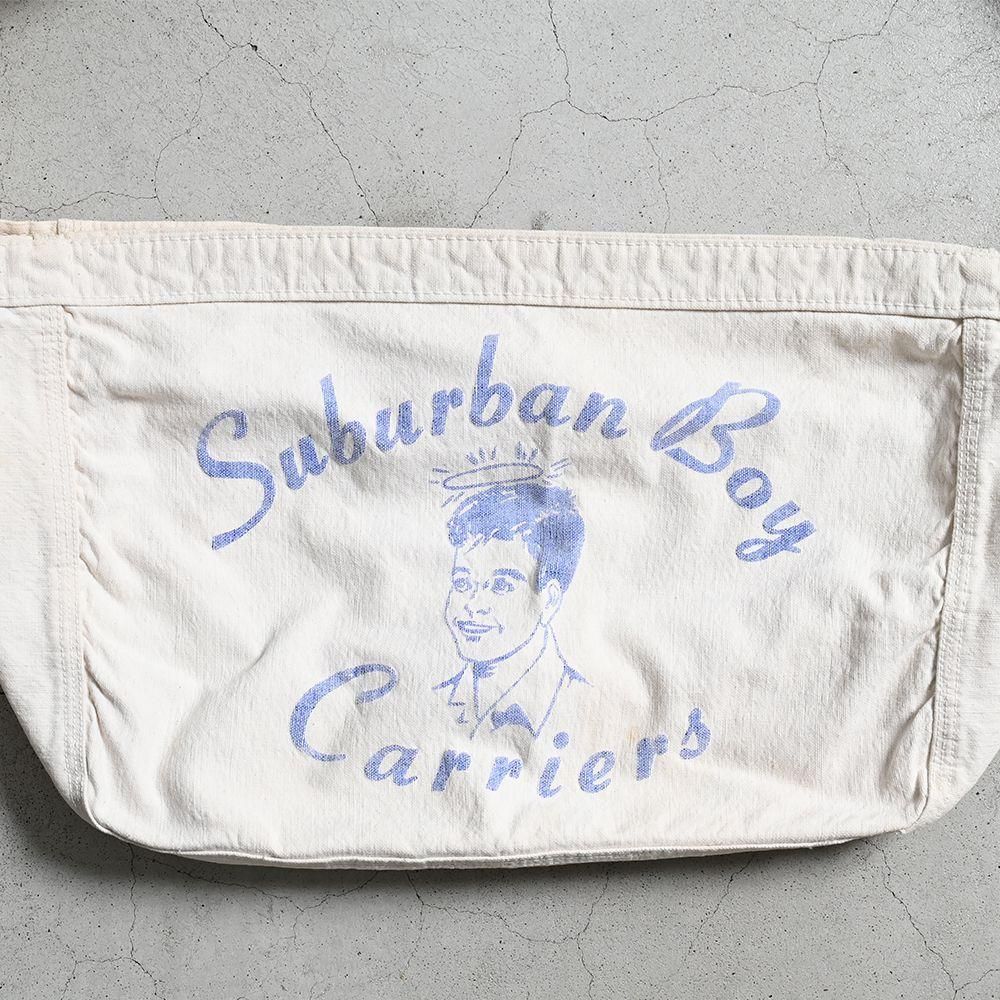 Suburban Boy
Carriers